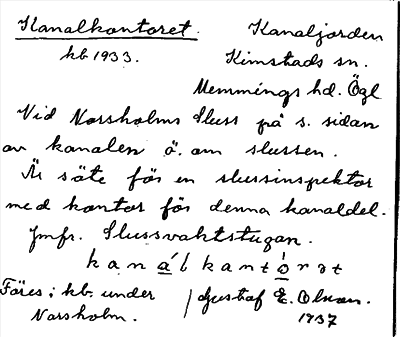 Kanalkontoret. Kanaljorden
kb 1933. Kimstads sn.
Memmings hd. Ögl
Vid Norsholms Sluss på s. sidan
av kanalen ö. om slussen.
Är säte för en slussinspektor
med kontor för denna kanaldel.
Jmfr. Slussvaktstugan.
kanálkantòrət
Föres; kb. under Gustaf E. Olson.
Norsholm. 1937